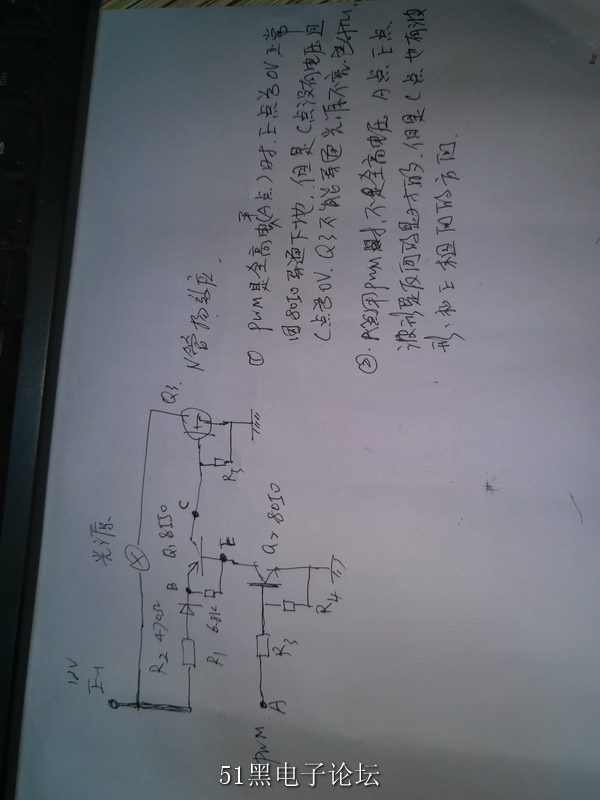 12V
光源
R2 470Ω
B
Q1 8550
C
Q3.
N管场效应.
R1 6.8K
E
R5
Q2 8050
R3
R4
PWM
A
① PWM是全高电平(A点)时.E点为0V正常
因8050导通下地..但是C点没有电压且
C点为0V.Q3不能导通光源不亮.
②.PWM 不是全高电压 A点 E点.
波形是反向的是对的.但是C点也有波
形.和E相同的方向.
51黑电子论坛